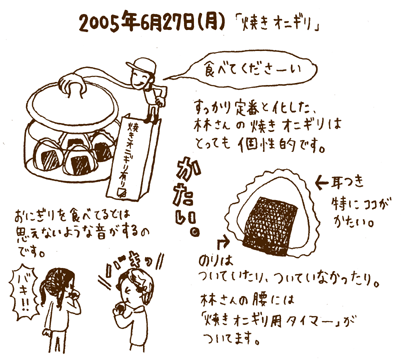 2005年6月27日(月)「焼きオニギリ」
食べてくださーい
すっかり定番と化した、
林さんの焼きオニギリは
とっても個性的です。
焼きオニギリ有り
かたい。
おにぎりを食べてるとは
思えないような音がするの
です。
バキ!!
バキッ
←耳つき
特にココが
かたい。
のりは
ついていたり、ついていなかったり。
林さんの腰には
「焼きオニギリ用タイマー」が
ついてます。